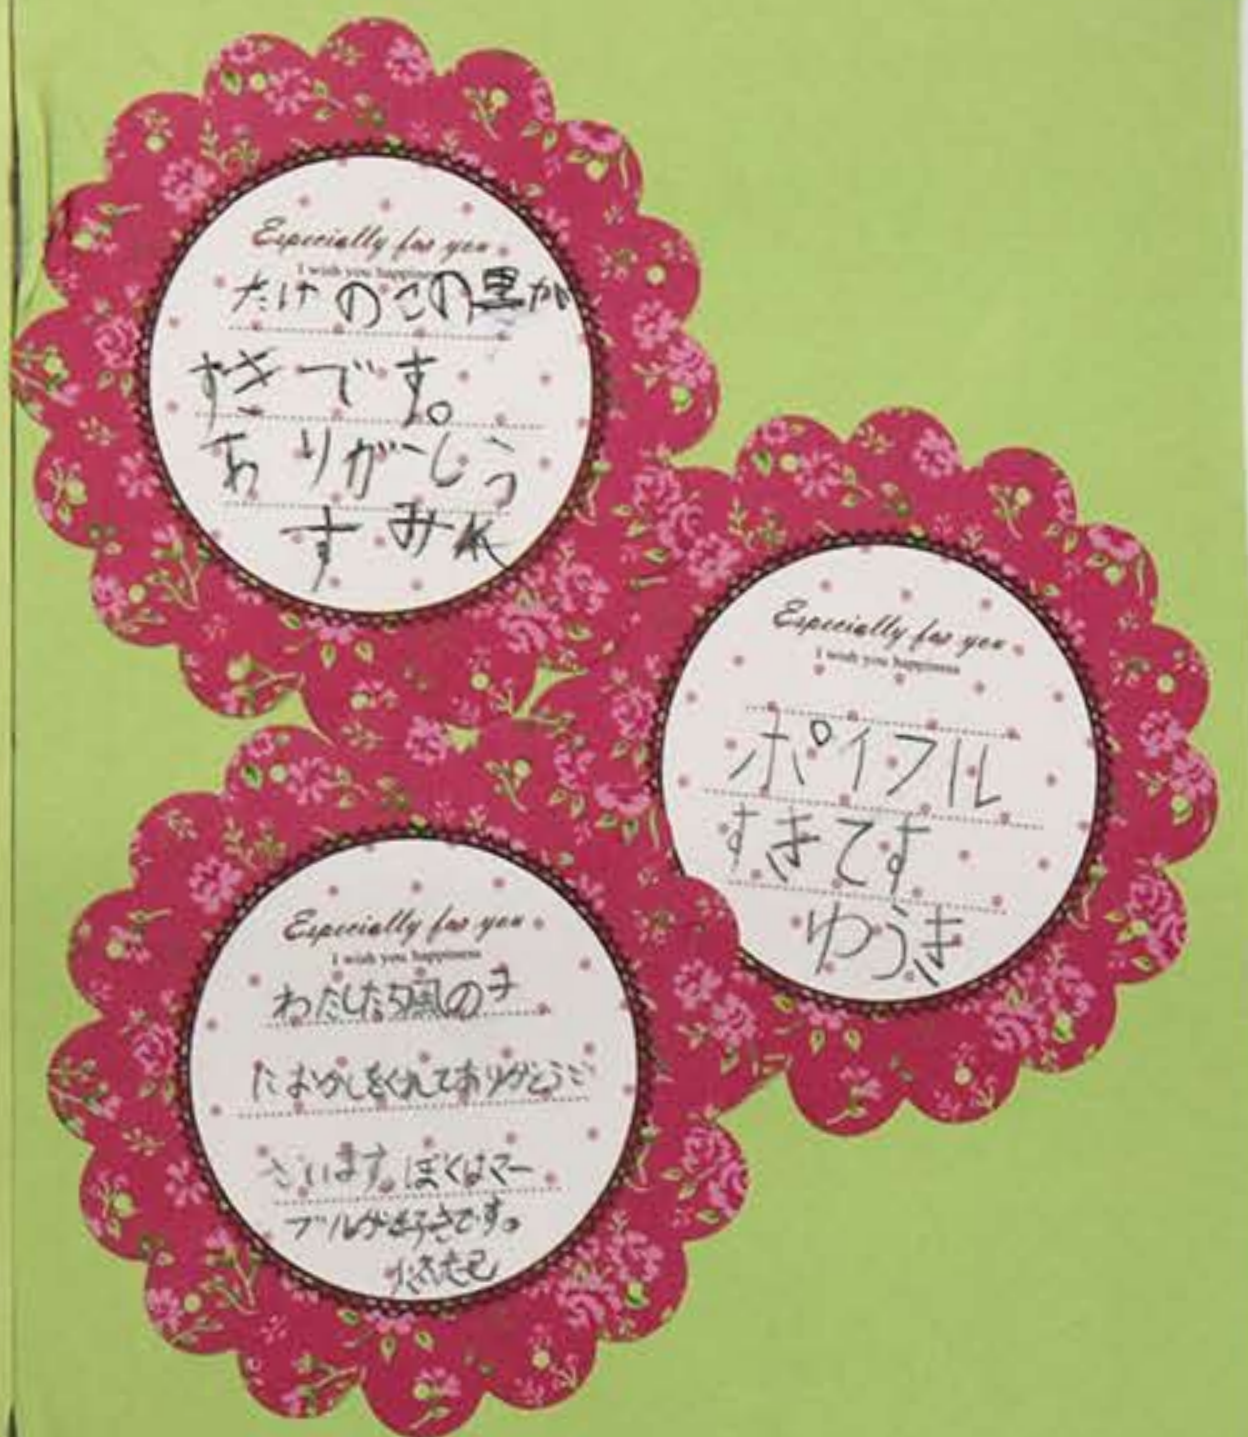 Especially for you
I wish you happiness
たけのこの里が
すきです。
ありがとう
すみれ
Especially for you
I wish you happiness
ポイフル
すきてす
ゆうき
Especially for you
I wish you happiness
わたしたち風の子
におかしをくれてありがとうご
ざいます。ぼくはマー
ブルが好きです。